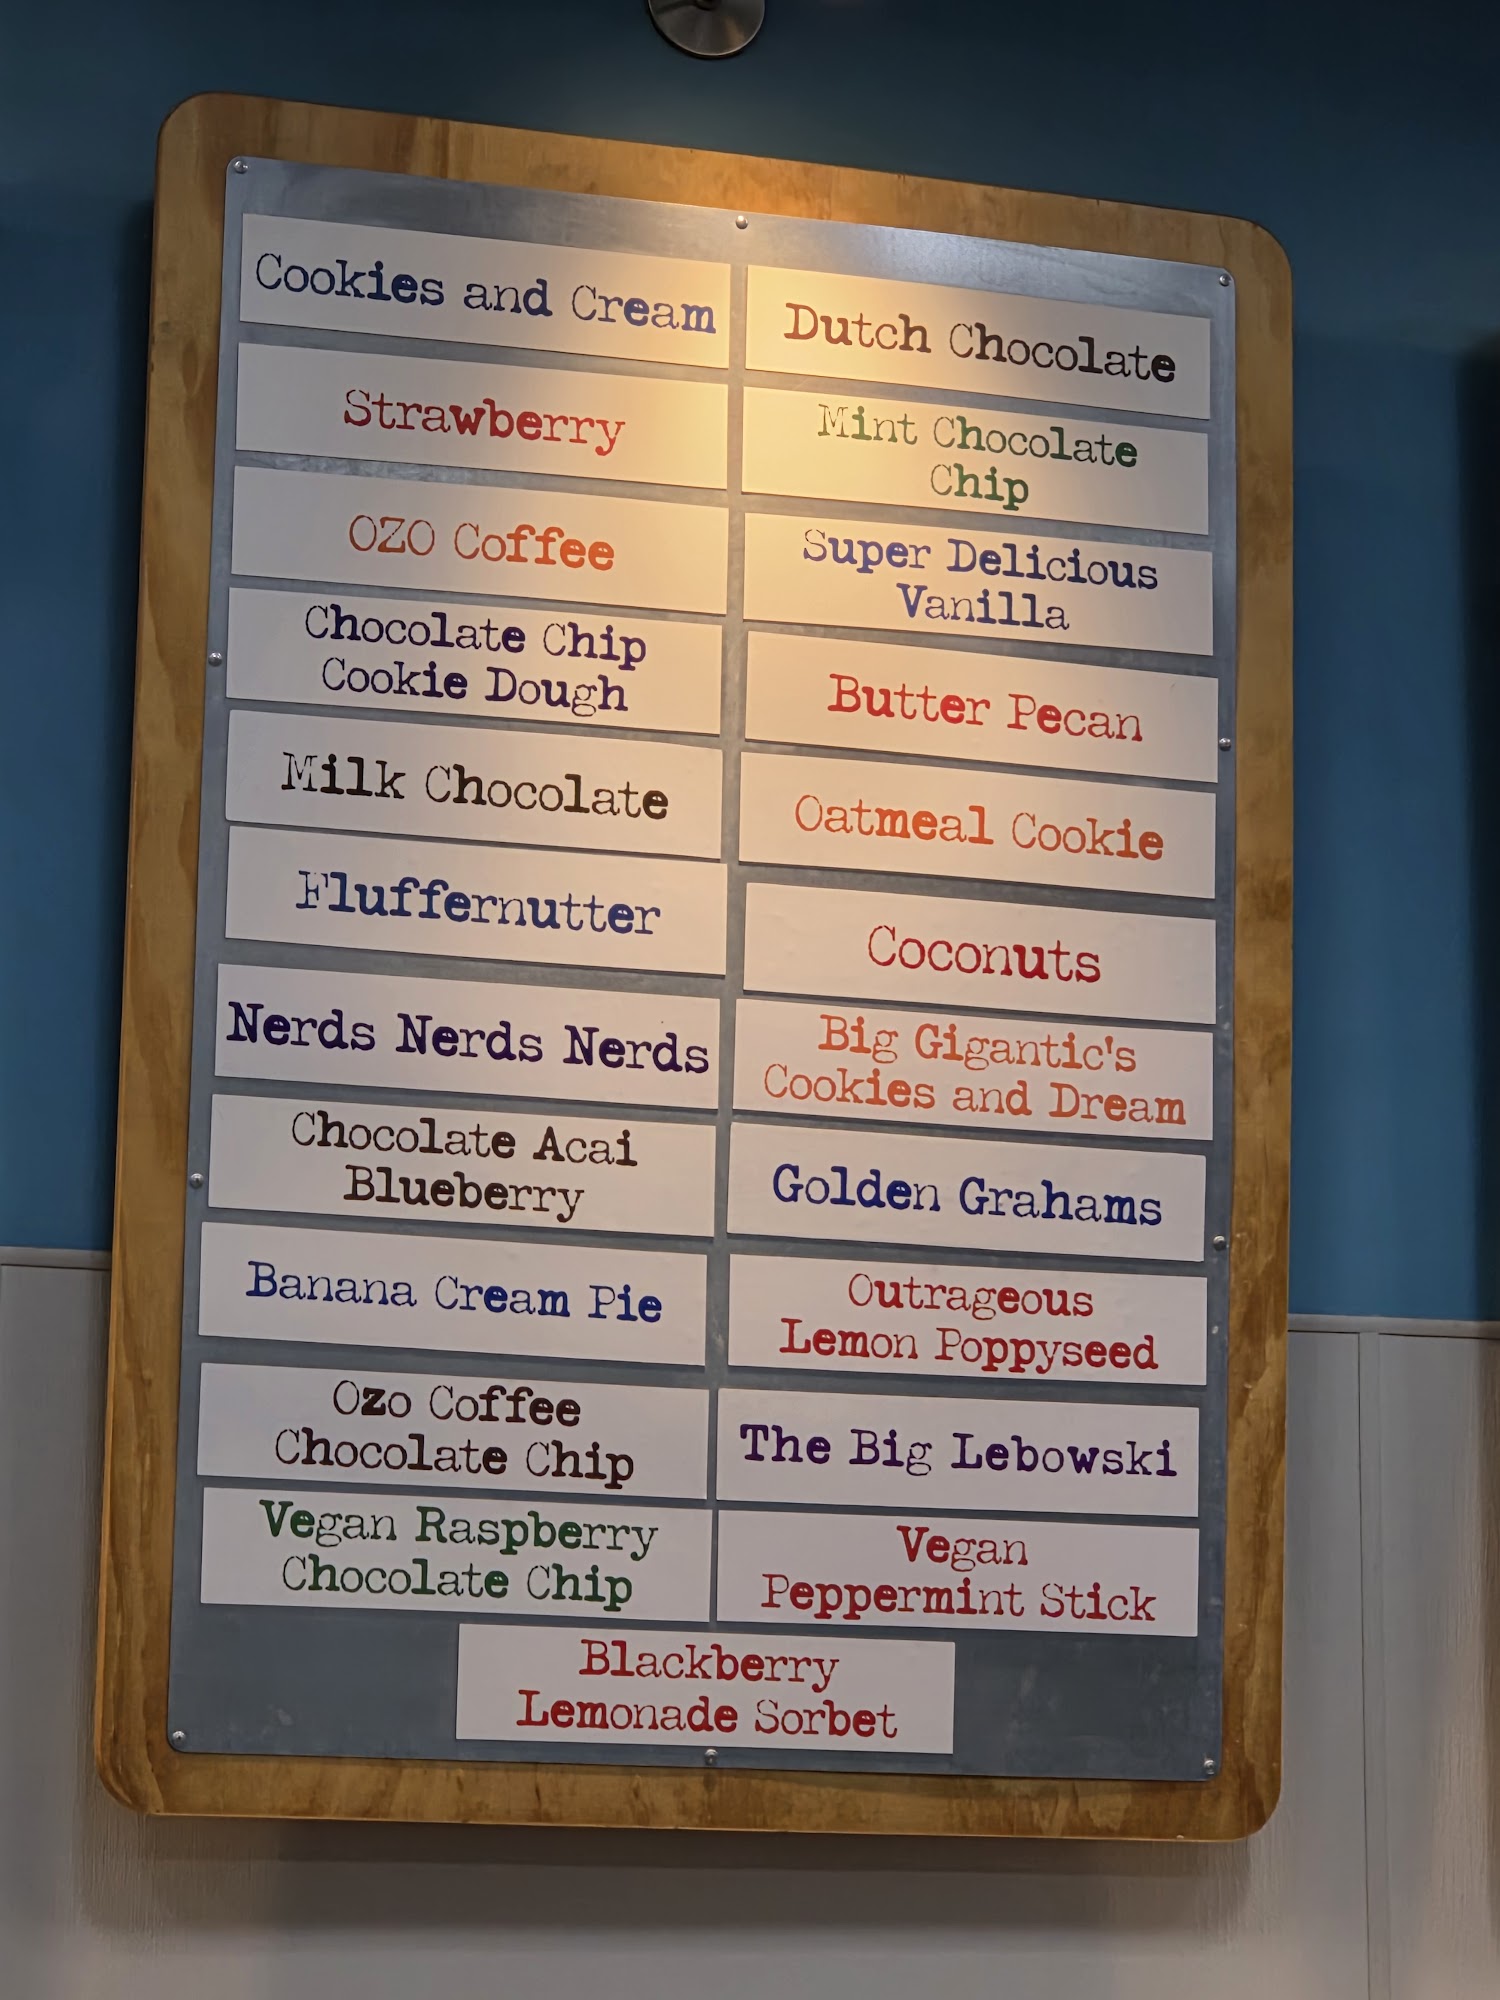 Cookies and Cream
Dutch Chocolate
Strawberry
Mint Chocolate
Chip
OZO Coffee
Super Delicious
Vanilla
Chocolate Chip
Cookie Dough
Butter Pecan
Milk Chocolate
Oatmeal Cookie
Fluffernutter
Coconuts
Nerds Nerds Nerds
Big Gigantic's
Cookies and Dream
Chocolate Acai
Blueberry
Golden Grahams
Banana Cream Pie
Outrageous
Lemon Poppyseed
Ozo Coffee
Chocolate Chip
The Big Lebowski
Vegan Raspberry
Chocolate Chip
Vegan
Peppermint Stick
Blackberry
Lemonade Sorbet